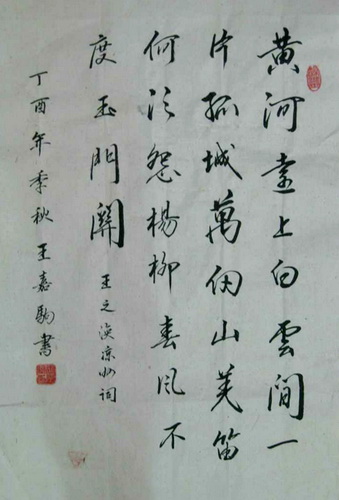 黄河遠上白雲間一
片孤城萬仞山羌笛
何须怨楊柳春風不
度玉門關
王之涣凉州词
丁酉年季秋王嘉驹書